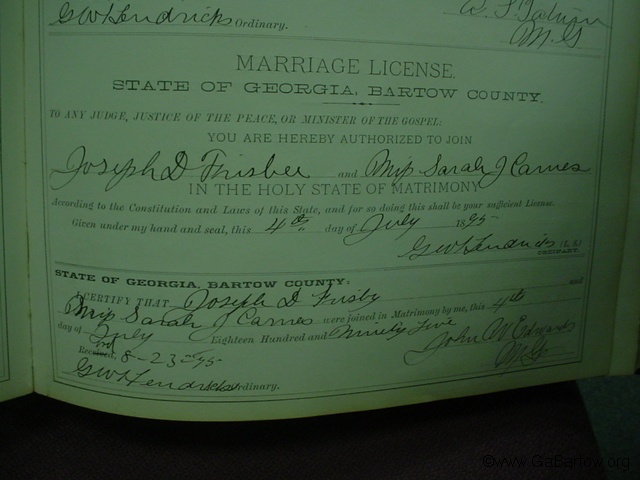 GW Hendricks Ordinary.
M. G
MARRIAGE LICENSE.
STATE OF GEORGIA, BARTOW COUNTY.
TO ANY JUDGE, JUSTICE OF THE PEACE, OR MINISTER OF THE GOSPEL:
YOU ARE HEREBY AUTHORIZED TO JOIN
Joseph D Frisbee and Miss Sarah J Carnes
IN THE HOLY STATE OF MATRIMONY
According to the Constitution and Laws of this State, and for so doing this shall be your sufficient License.
Given under my hand and seal, this 4th day of July 1895
GW Hendricks (L. S.)
ORDINARY.
STATE OF GEORGIA, BARTOW COUNTY:
I CERTIFY THAT Joseph D Frisby and
Miss Sarah J Carnes were joined in Matrimony by me, this 4th
day of July Eighteen Hundred and Ninety Five
Received 8-23-95 John W Edwards
M. G
GW Hendricks Ordinary.
©www.GaBartow.org